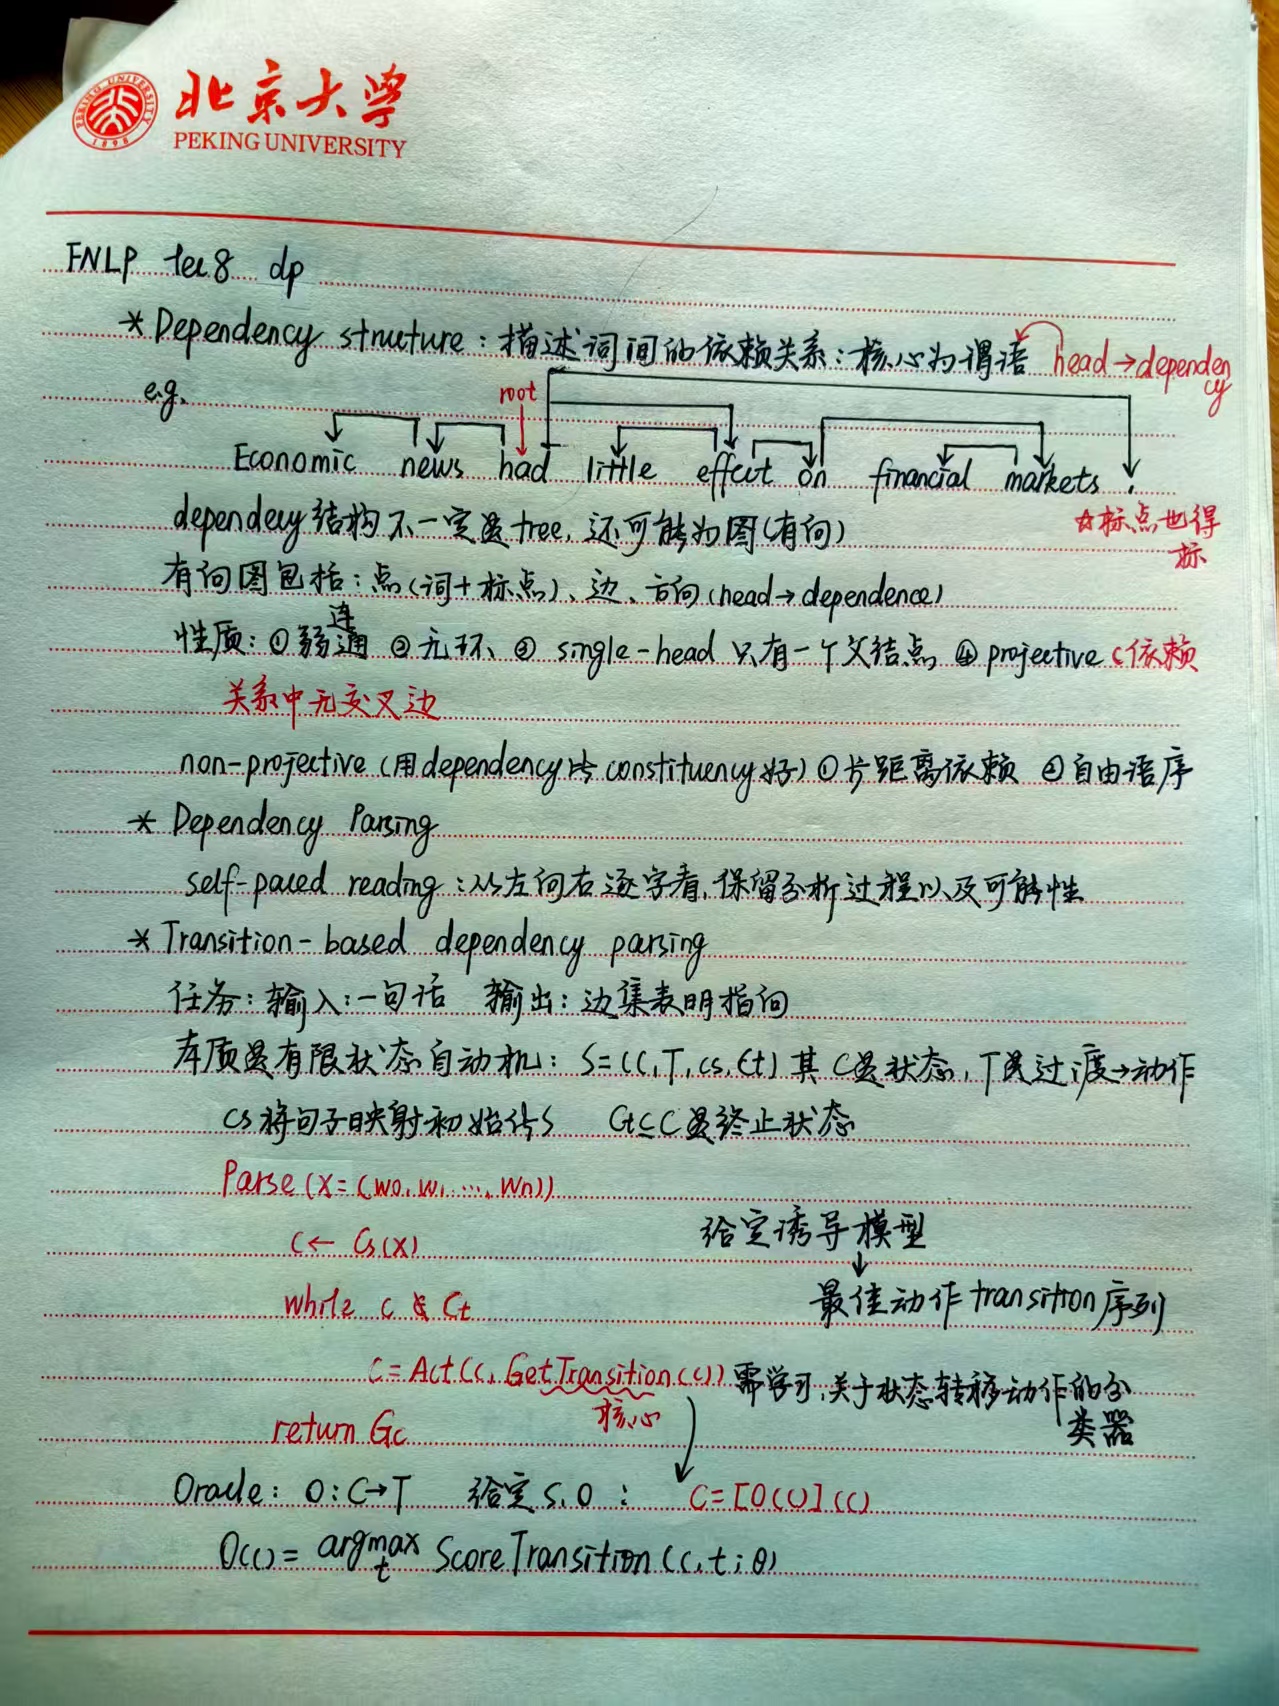 北京大学
PEKING UNIVERSITY
1898
FNLP lec8 dp
* Dependency structure：描述词间的依赖关系：核心为谓语 head→dependen
cy
e.g. root
Economic news had little effect on financial markets .
dependecy结构不一定是tree，还可能为图(有向)
☆标点也得
标
有向图包括：点(词+标点)、边、方向(head→dependence)
性质：①弱连通 ②无环、③ single-head 只有一个父结点 ④ projective (依赖
关系中无交叉边
non-projective (用dependency比constituency好) ①长距离依赖 ②自由语序
* Dependency Parsing
self-paced reading：从左向右逐字看，保留分析过程以及可能性
* Transition-based dependency parsing
任务：输入：一句话 输出：边集表明指向
本质是有限状态自动机：S=(C,T,cs,Ct) 其C是状态，T是过渡→动作
Cs将句子映射初始化S Ct⊆C是终止状态
Parse(x=(w0,w1...,wn))
c←Cs(x)
给定诱导模型
↓
while c ∉ Ct
最佳动作transition序列
C=Act(c,GetTransition(c)) 需学习，关于状态转移动作的分
类器
核心
return Gc
Oracle：O:C→T 给定S,O： C=[O(c)](c)
O(c)=argmax t ScoreTransition(c,t;θ)